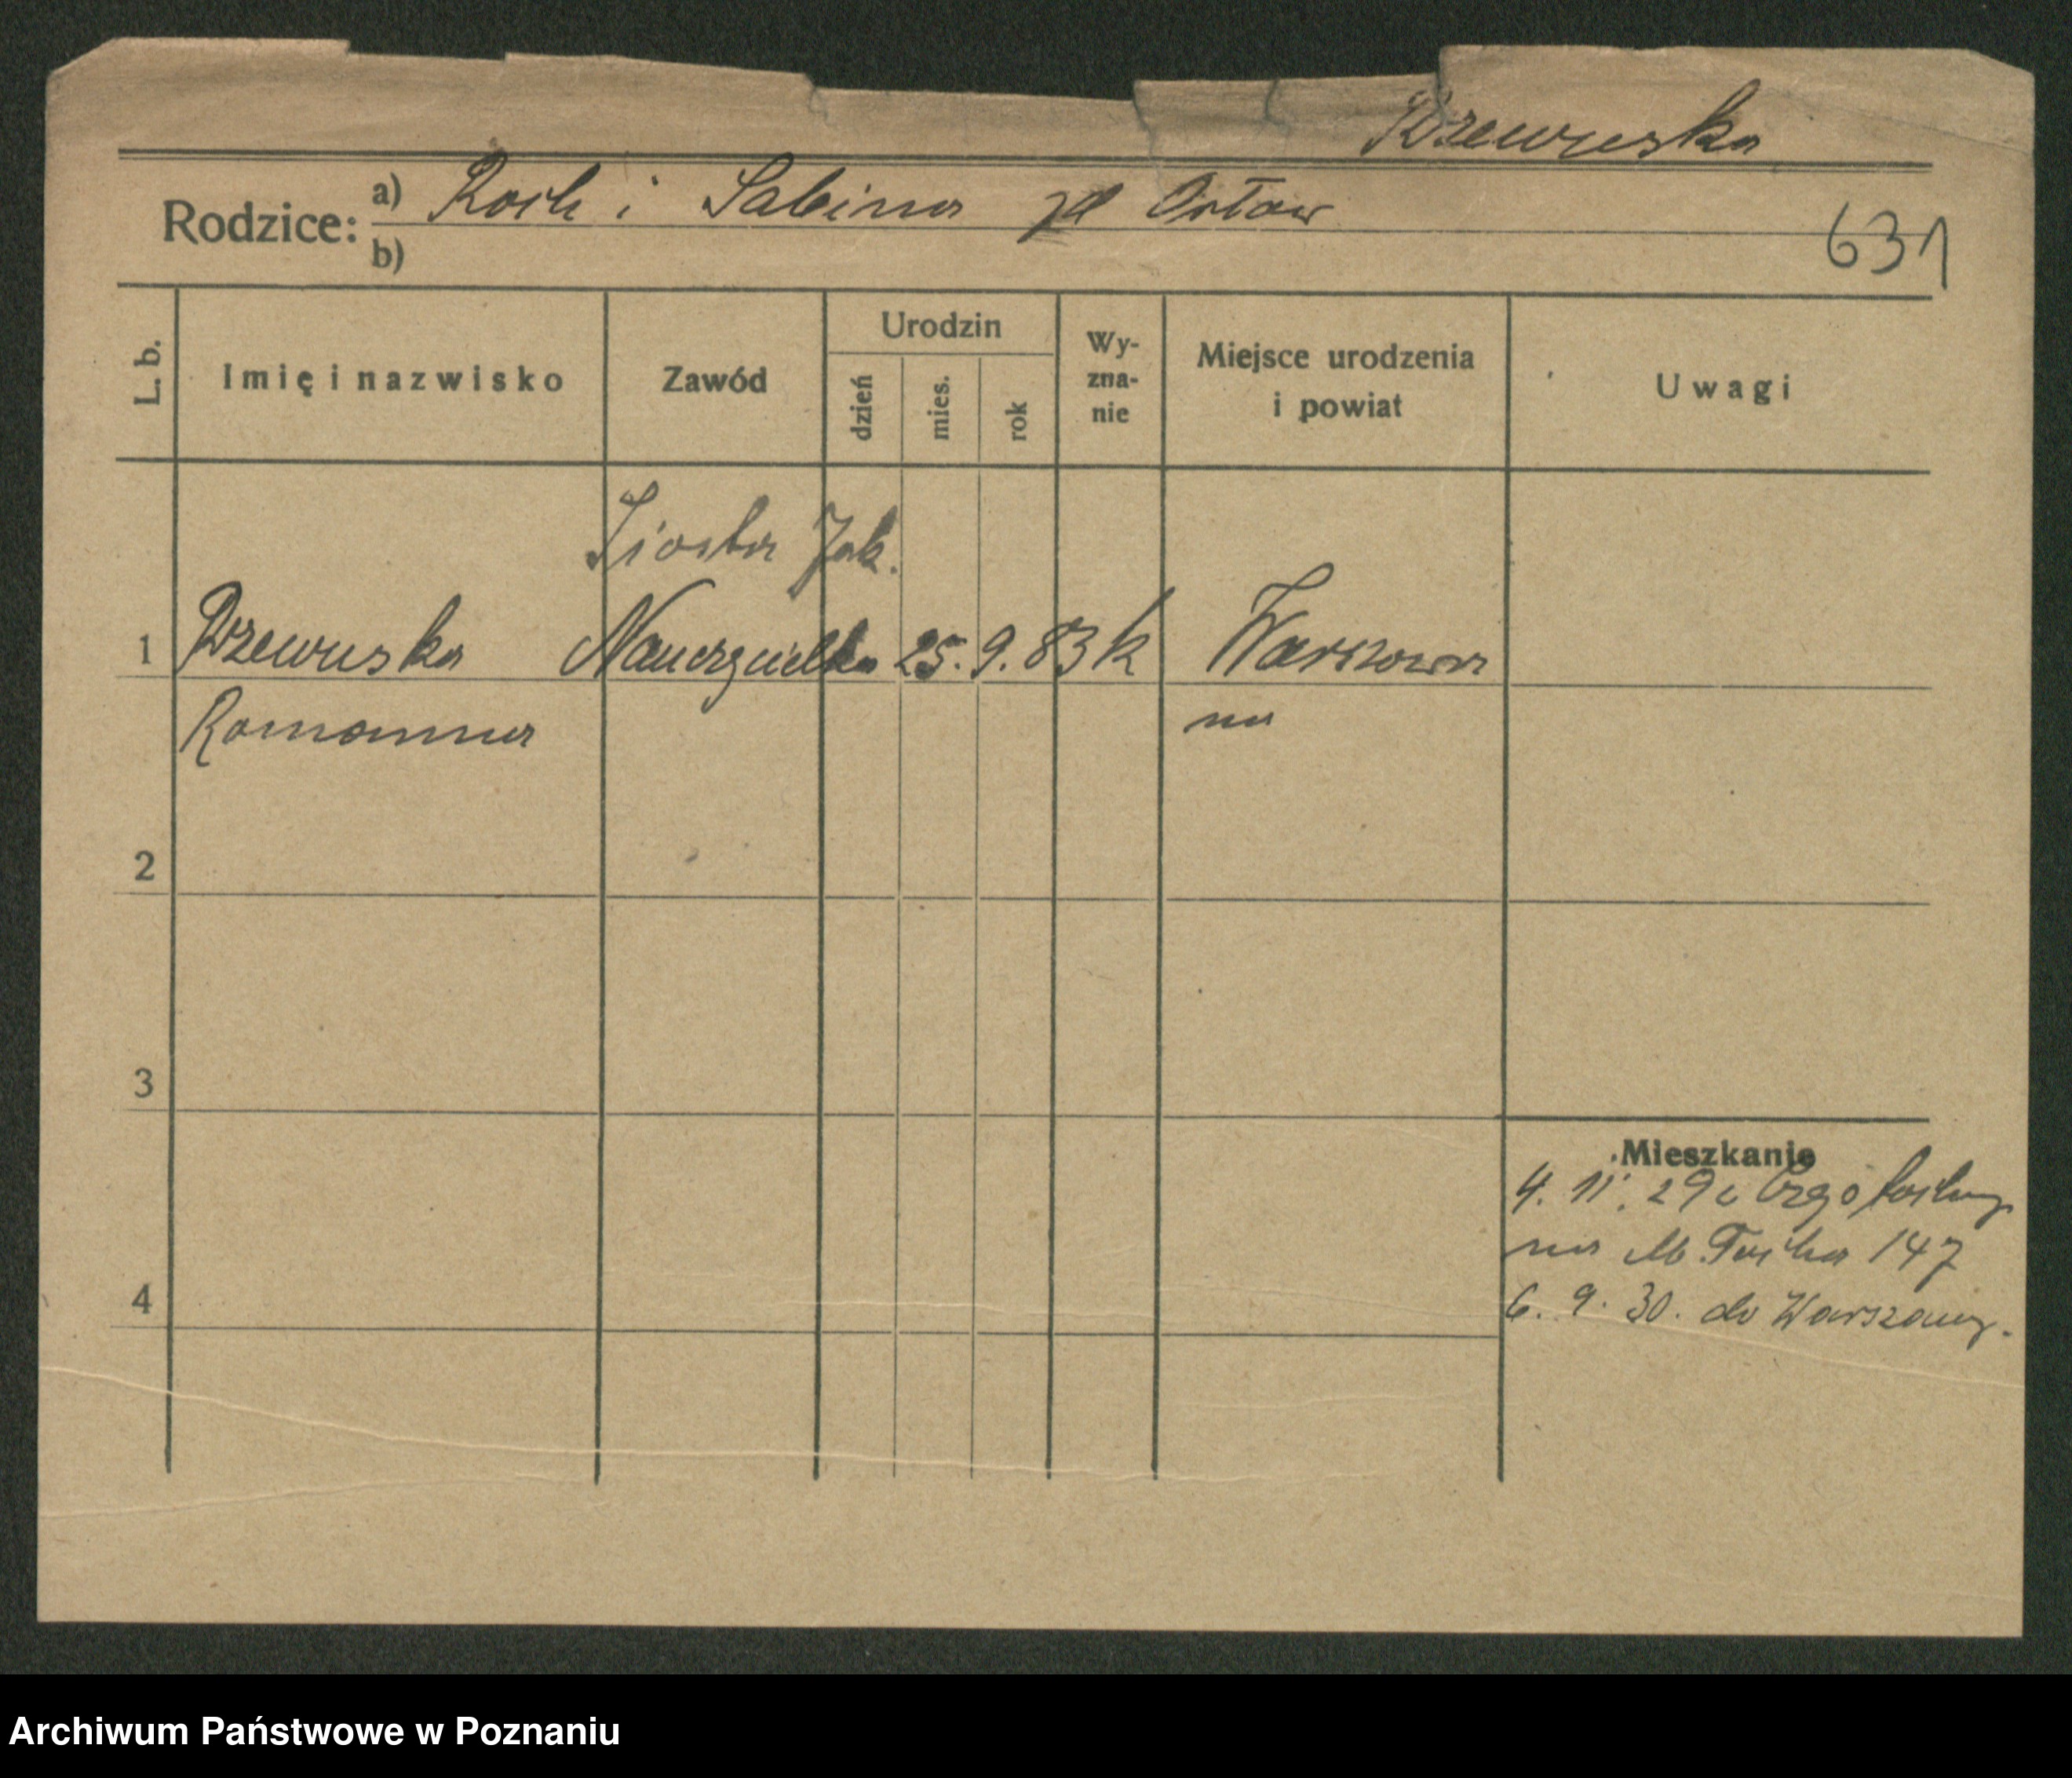 Rzewuska
Rodzice: a) Roch i Sabina zd Ortow
b)
631
L. b.
Imię i nazwisko
Zawód
Urodzin
dzień
mies.
rok
Wy-
zna-
nie
Miejsce urodzenia
i powiat
Uwagi
Siostra Zak.
1 Rzewuska Nauczycielka 25. 9. 83 k Warszawa
Romanna
2
3
4
Mieszkanie
4. 11. 29 z
na M. Focha 147
6. 9. 30. do Warszawy.
Archiwum Państwowe w Poznaniu